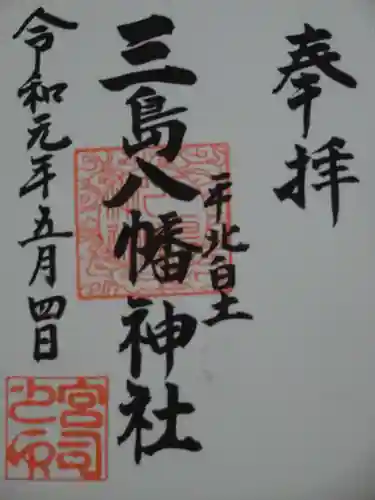 奉拝
平北白土
三島八幡神社
令和元年五月四日
宮司之印